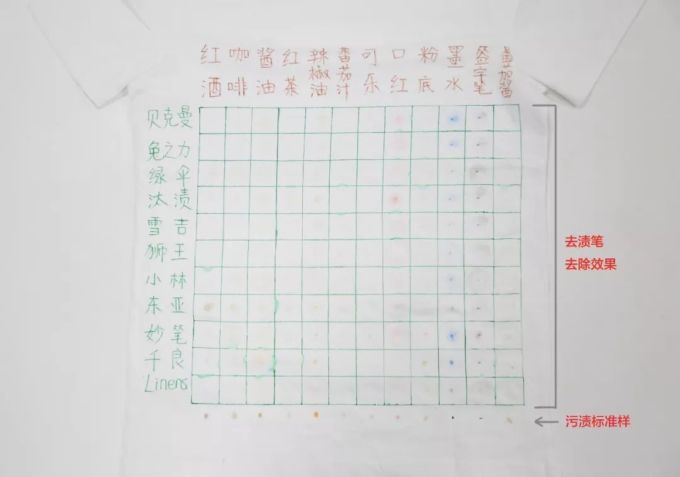 红酒 咖啡 酱油 红茶 辣椒油 番茄汁 可乐 口红 粉底 墨水 签字笔
贝克曼
兔之力
绿伞
汰渍
雪吉
狮王
小林
东亚
妙笔
千良
Linens
去渍笔
去除效果
污渍标准样